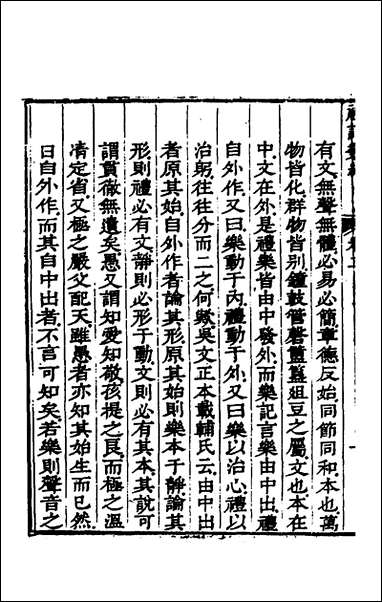 有文無聲無體必易必簡章德反始同節同和本也萬
物皆化群物皆別鐘鼓管磬簠簋俎豆之屬文也本在
中文在外是禮樂皆由中發外而樂記言樂由中出禮
自外作又曰樂動于内禮動于外又曰樂以治心禮以
治躬往往分而二之何歟吳文正本載輔氏云由中出
者原其始自外作者論其形原其始則樂本于靜論其
形則禮必有文靜則必形于動文則必有其本其說可
謂貫徹無遺矣愚又謂知愛知敬孩提之良而極之溫
凊定省又極之嚴父配天雖愚者亦知其始生而已然
曰自外作而其自中出者不言可知矣若樂則聲音之